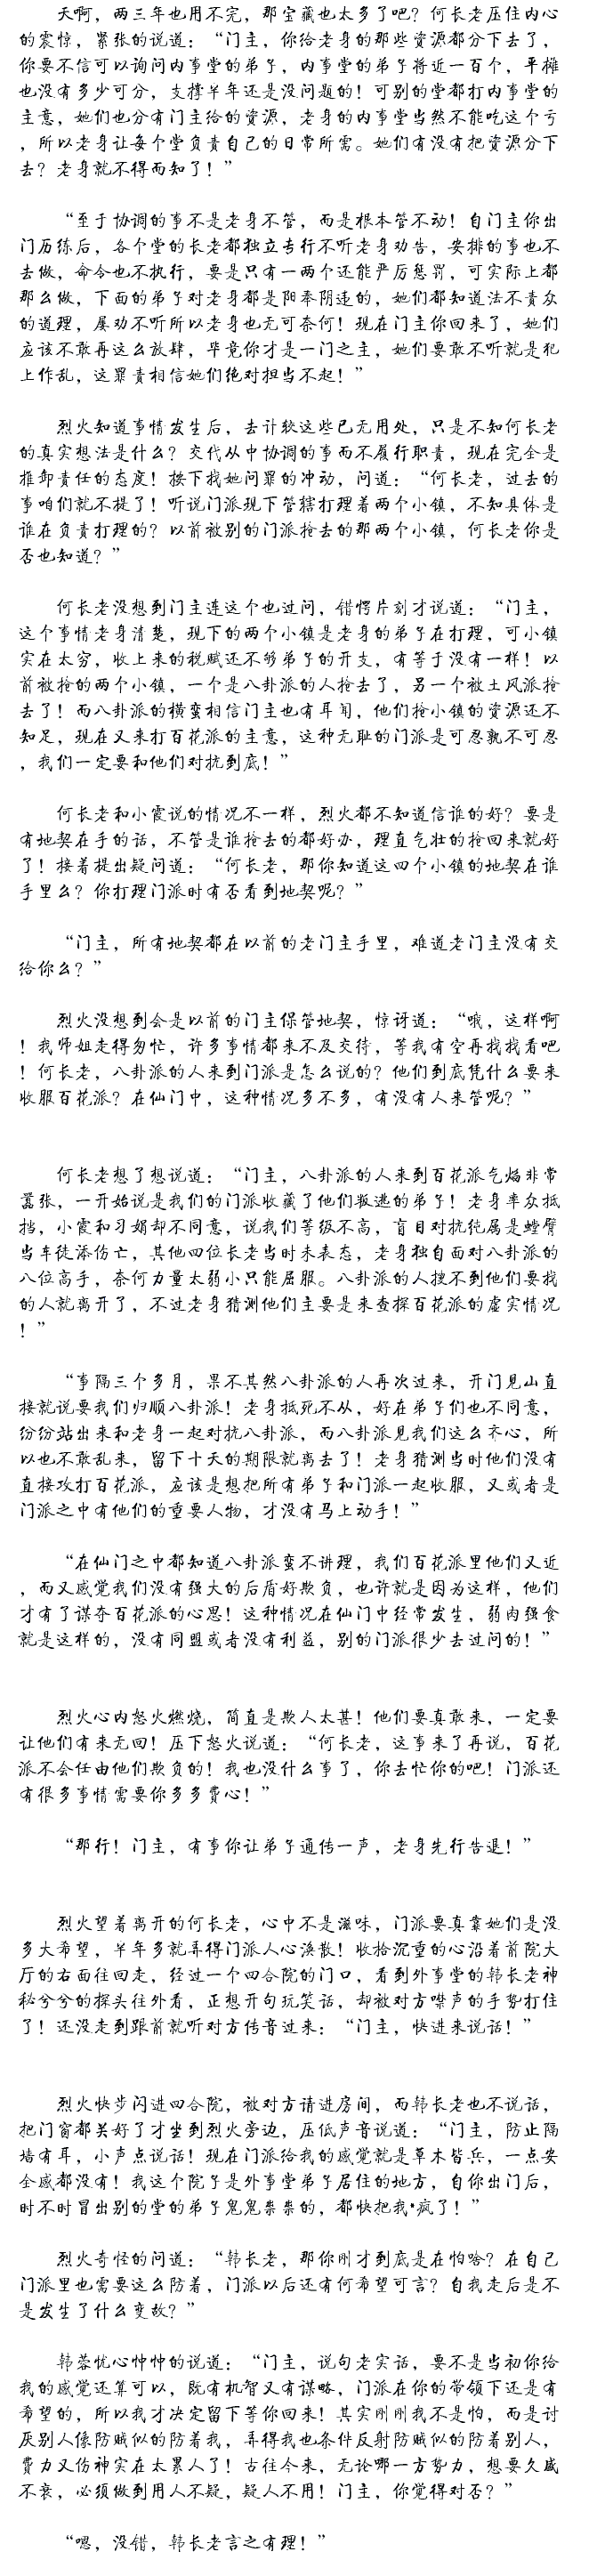 天啊，两三年也用不完，那宝藏也太多了吧？何长老压住内心
的震惊，紧张的说道：“门主，你给老身的那些资源都分下去了，
你要不信可以询问内事堂的弟子，内事堂的弟子将近一百个，平摊
也没有多少可分，支撑半年还是没问题的！可别的堂都打内事堂的
主意，她们也分有门主给的资源，老身的内事堂当然不能吃这个亏
，所以老身让每个堂负责自己的日常所需。她们有没有把资源分下
去？老身就不得而知了！”
“至于协调的事不是老身不管，而是根本管不动！自门主你出
门历练后，各个堂的长老都独立专行不听老身劝告，安排的事也不
去做，命令也不执行，要是只有一两个还能严厉惩罚，可实际上都
那么做，下面的弟子对老身都是阳奉阴违的，她们都知道法不责众
的道理，屡劝不听所以老身也无可奈何！现在门主你回来了，她们
应该不敢再这么放肆，毕竟你才是一门之主，她们要敢不听就是犯
上作乱，这罪责相信她们绝对担当不起！”
烈火知道事情发生后，去计较这些已无用处，只是不知何长老
的真实想法是什么？交代从中协调的事而不履行职责，现在完全是
推卸责任的态度！按下找她问罪的冲动，问道：“何长老，过去的
事咱们就不提了！听说门派现下管辖打理着两个小镇，不知具体是
谁在负责打理的？以前被别的门派抢去的那两个小镇，何长老你是
否也知道？”
何长老没想到门主连这个也过问，错愕片刻才说道：“门主，
这个事情老身清楚，现下的两个小镇是老身的弟子在打理，可小镇
实在太穷，收上来的税赋还不够弟子的开支，有等于没有一样！以
前被抢的两个小镇，一个是八卦派的人抢去了，另一个被土风派抢
去了！而八卦派的横蛮相信门主也有耳闻，他们抢小镇的资源还不
知足，现在又来打百花派的主意，这种无耻的门派是可忍孰不可忍
，我们一定要和他们对抗到底！”
何长老和小霞说的情况不一样，烈火都不知道信谁的好？要是
有地契在手的话，不管是谁抢去的都好办，理直气壮的抢回来就好
了！接着提出疑问道：“何长老，那你知道这四个小镇的地契在谁
手里么？你打理门派时有否看到地契呢？”
“门主，所有地契都在以前的老门主手里，难道老门主没有交
给你么？”
烈火没想到会是以前的门主保管地契，惊讶道：“哦，这样啊
！我师姐走得匆忙，许多事情都来不及交待，等我有空再找找看吧
！何长老，八卦派的人来到门派是怎么说的？他们到底凭什么要来
收服百花派？在仙门中，这种情况多不多，有没有人来管呢？”
何长老想了想说道：“门主，八卦派的人来到百花派气焰非常
嚣张，一开始说是我们的门派收藏了他们叛逃的弟子！老身率众抵
挡，小霞和习娟却不同意，说我们等级不高，盲目对抗纯属是螳臂
当车徒添伤亡，其他四位长老当时未表态，老身独自面对八卦派的
八位高手，奈何力量太弱小只能屈服。八卦派的人搜不到他们要找
的人就离开了，不过老身猜测他们主要是来查探百花派的虚实情况
！”
“事隔三个多月，果不其然八卦派的人再次过来，开门见山直
接就说要我们归顺八卦派！老身抵死不从，好在弟子们也不同意，
纷纷站出来和老身一起对抗八卦派，而八卦派见我们这么齐心，所
以也不敢乱来，留下十天的期限就离去了！老身猜测当时他们没有
直接攻打百花派，应该是想把所有弟子和门派一起收服，又或者是
门派之中有他们的重要人物，才没有马上动手！”
“在仙门之中都知道八卦派蛮不讲理，我们百花派里他们又近
，而又感觉我们没有强大的后盾好欺负，也许就是因为这样，他们
才有了谋夺百花派的心思！这种情况在仙门中经常发生，弱肉强食
就是这样的，没有同盟或者没有利益，别的门派很少去过问的！”
烈火心内怒火燃烧，简直是欺人太甚！他们要真敢来，一定要
让他们有来无回！压下怒火说道：“何长老，这事来了再说，百花
派不会任由他们欺负的！我也没什么事了，你去忙你的吧！门派还
有很多事情需要你多多费心！”
“那行！门主，有事你让弟子通传一声，老身先行告退！”
烈火望着离开的何长老，心中不是滋味，门派要真靠她们是没
多大希望，半年多就弄得门派人心涣散！收拾沉重的心沿着前院大
厅的右面往回走，经过一个四合院的门口，看到外事堂的韩长老神
秘兮兮的探头往外看，正想开句玩笑话，却被对方噤声的手势打住
了！还没走到跟前就听对方传音过来：“门主，快进来说话！”
烈火快步闪进四合院，被对方请进房间，而韩长老也不说话，
把门窗都关好了才坐到烈火旁边，压低声音说道：“门主，防止隔
墙有耳，小声点说话！现在门派给我的感觉就是草木皆兵，一点安
全感都没有！我这个院子是外事堂弟子居住的地方，自你出门后，
时不时冒出别的堂的弟子鬼鬼祟祟的，都快把我·疯了！”
烈火奇怪的问道：“韩长老，那你刚才到底是在怕啥？在自己
门派里也需要这么防着，门派以后还有何希望可言？自我走后是不
是发生了什么变故？”
韩蓉忧心忡忡的说道：“门主，说句老实话，要不是当初你给
我的感觉还算可以，既有机智又有谋略，门派在你的带领下还是有
希望的，所以我才决定留下等你回来！其实刚刚我不是怕，而是讨
厌别人像防贼似的防着我，弄得我也条件反射防贼似的防着别人，
费力又伤神实在太累人了！古往今来，无论哪一方势力，想要久盛
不衰，必须做到用人不疑，疑人不用！门主，你觉得对否？”
“嗯，没错，韩长老言之有理！”